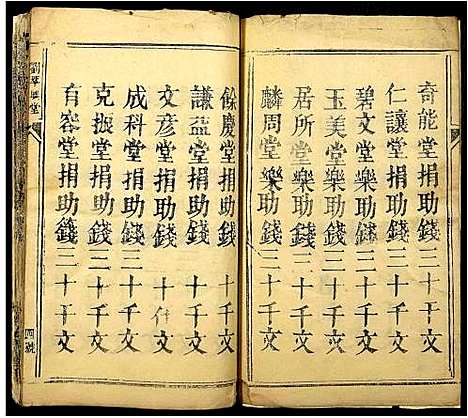 奇能堂捐助錢二十千文
仁讓堂捐助錢二十千文
碧文堂樂助錢二十千文
玉美堂樂助錢二十千文
居所堂樂助錢二十千文
麟周堂樂助錢二十千文
餘慶堂捐助錢二十千文
謙益堂捐助錢二十千文
文彦堂捐助錢二十千文
成科堂捐助錢二十千文
克振堂捐助錢二十千文
自容堂捐助錢二十千文
劉 堂
四號